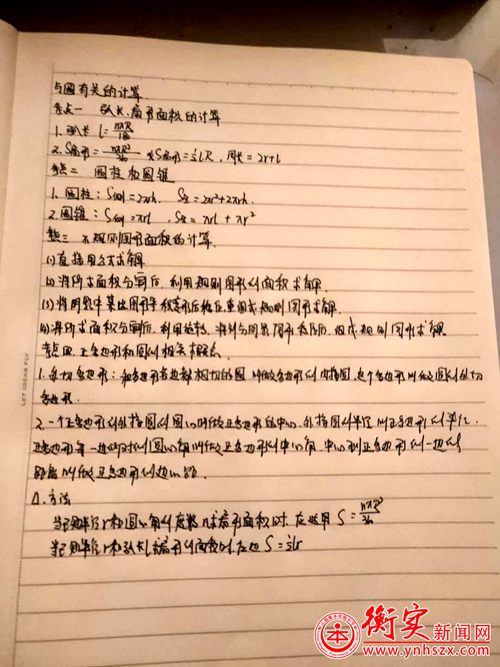 与圆有关的计算
考点一 弧长、扇形面积的计算
1. 弧长 l=nπR/180
2. S扇形=nπR²/360 或S扇形=½lR, 周长=2r+l
考点二 圆柱和圆锥
1. 圆柱:S侧=2πrh. S全=2πr²+2πrh.
2. 圆锥:S侧=πrl , S全=πrl+πr²
考点三 不规则图形面积的计算.
(1) 直接用公式求解
(2) 将所求面积分割后,利用规则图形的面积求解.
(3) 将阴影中某些图形等积变形后移位,重组成规则图形求解.
(4) 将所求面积分割后,利用旋转,将部分阴影图形移位后,组成规则图形求解.
考点四 正多边形和圆的相关概念.
1. 外切多边形:和多边形各边都相切的圆叫做多边形的内切圆,这个多边形叫做圆的外切
多边形.
2. 一个正多边形的外接圆的圆心叫做正多边形的中心,外接圆的半径叫正多边形的半径.
正多边形每一边所对的圆心角叫做正多边形的中心角,中心到正多边形的一边的
距离叫做正多边形的边心距.
△. 方法
当已知半径r和圆心角的度数n求扇形面积时,应选用 S=nπR²/360
当已知半径r和弧长l求扇形的面积时,应选 S=½lr
LET IDEAS FLY
衡实新闻网
www.ynhszx.com